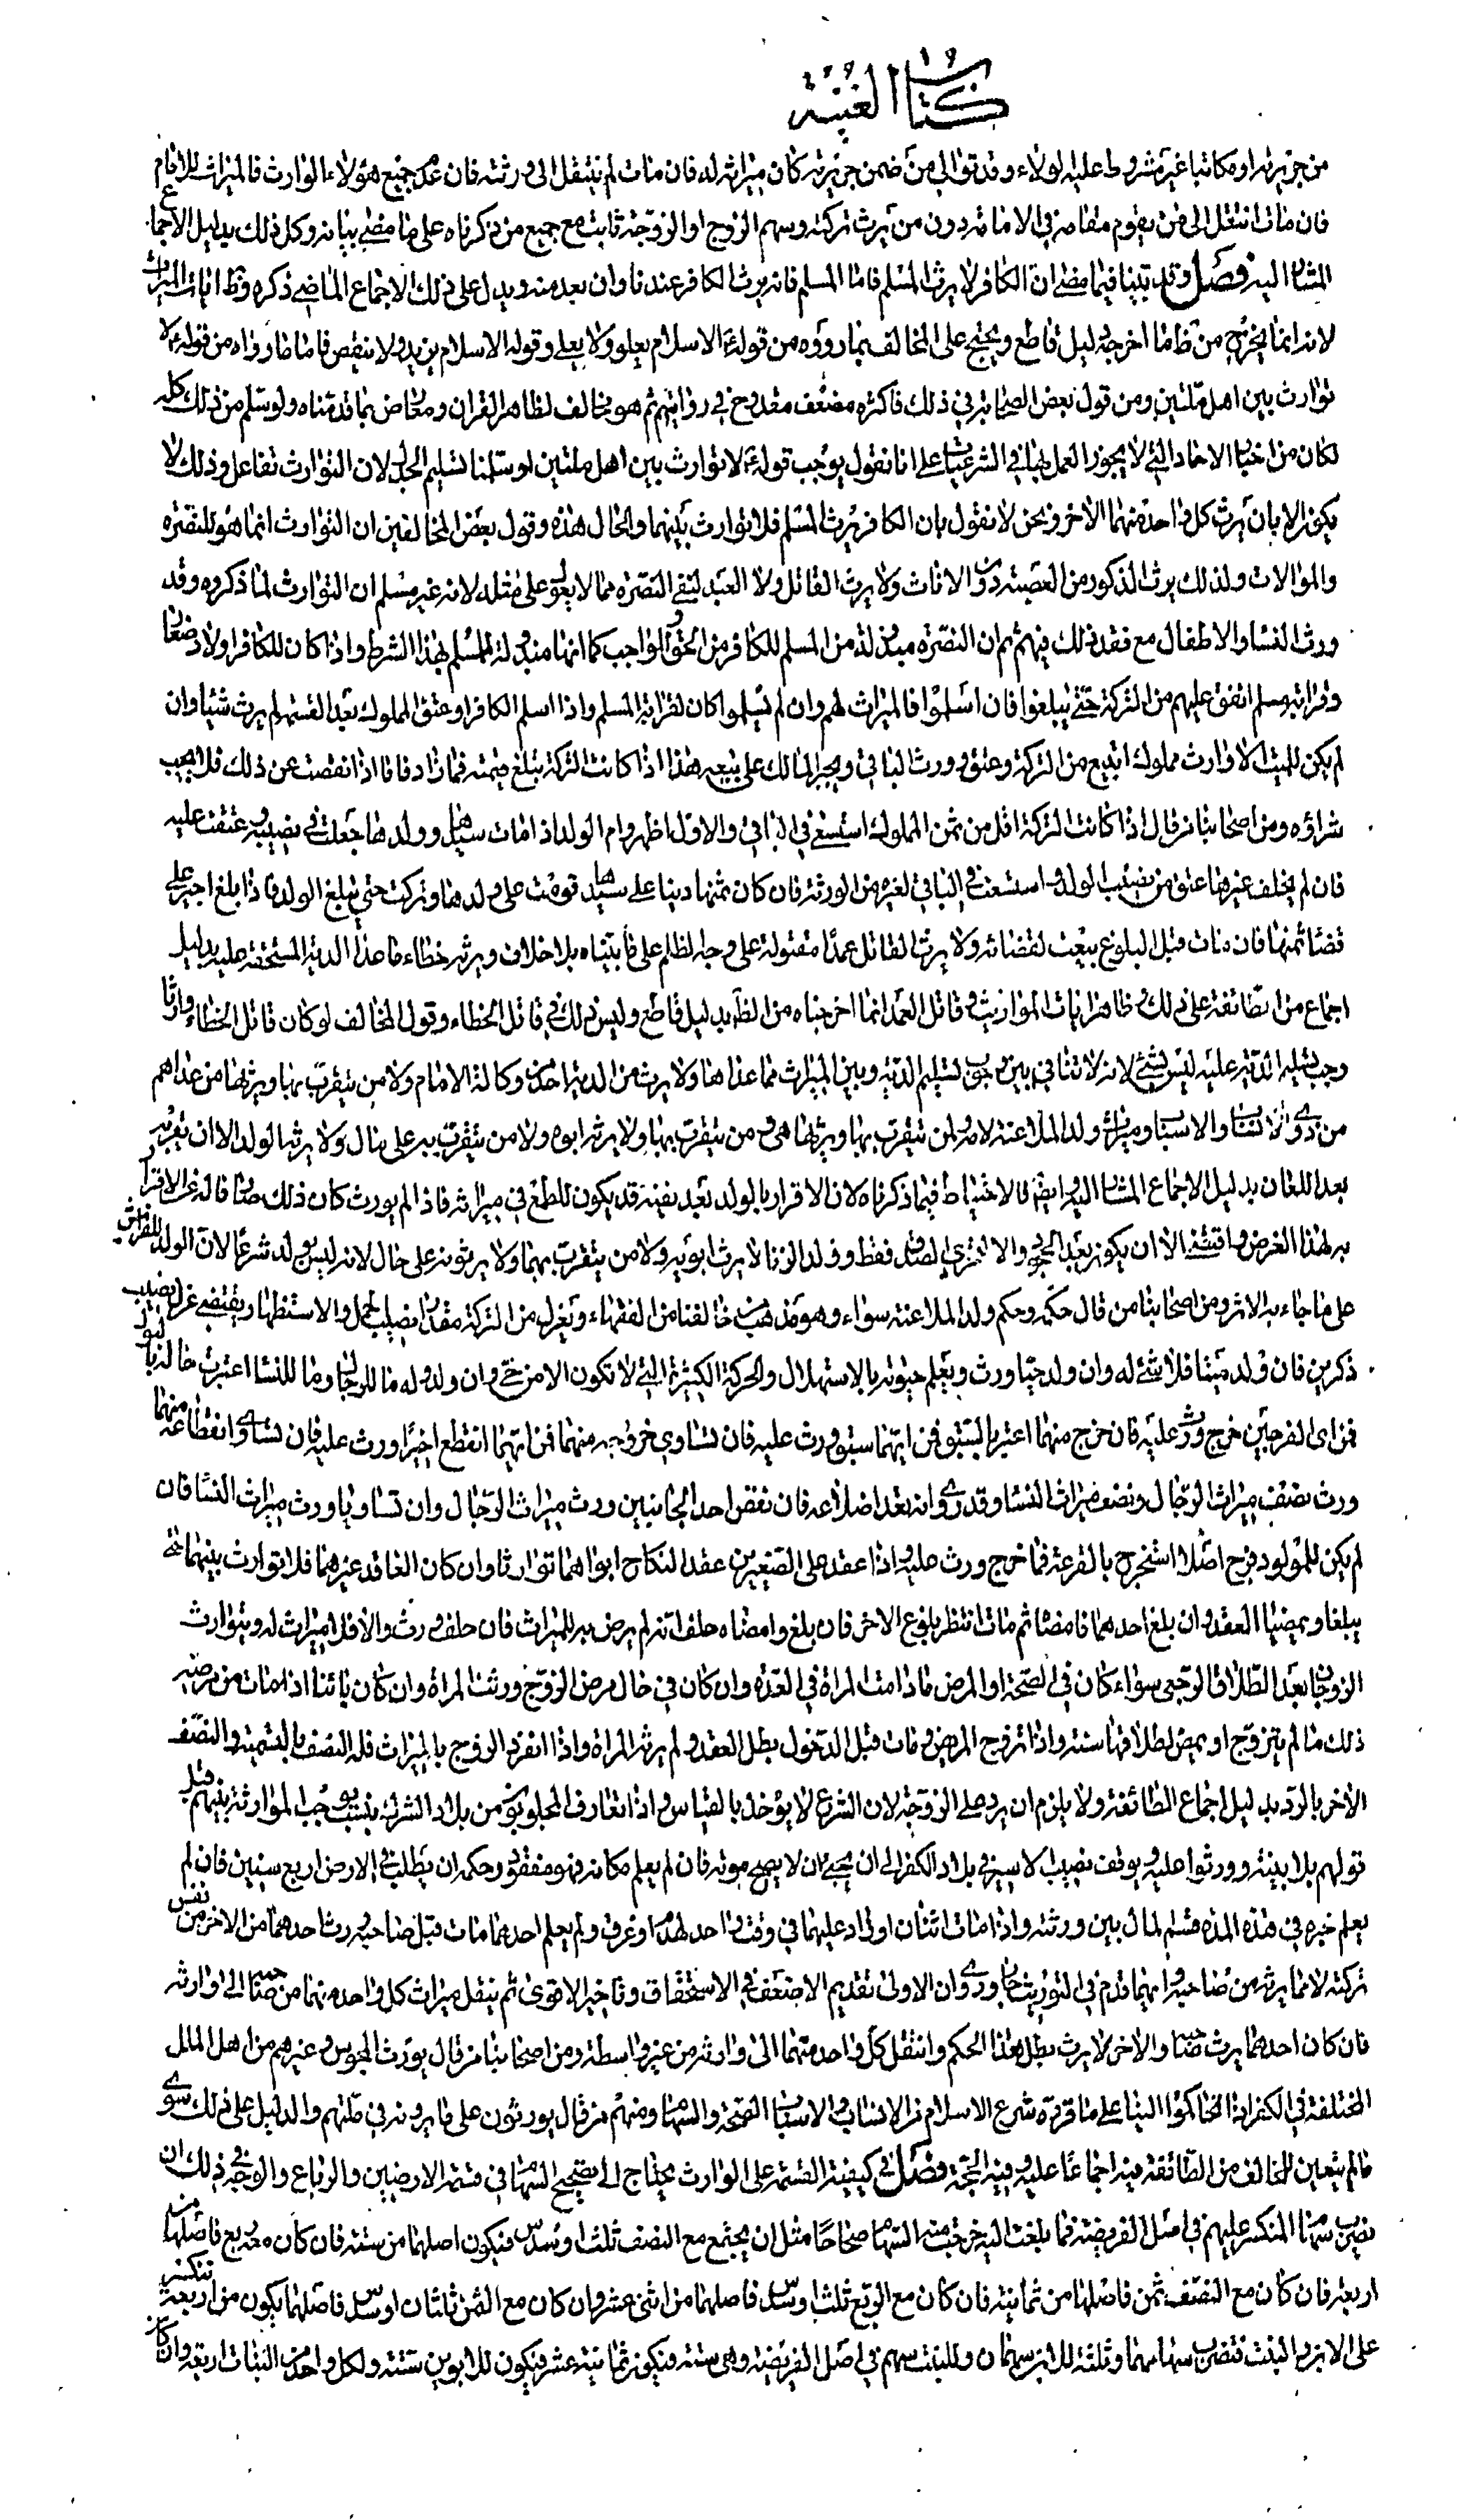 كتاب الغنية
من جريرته او مكاتبا غير مشروط عليه لولاء وقد توالى من ضمن جريرته كان ميراثه له فان مات لم ينتقل الى ورثته فان عدم جميع هؤلاء الوارث فالميراث للامام
فان مات انتقل الى من يقوم مقامه في الامامة دون من يرث تركته وسهم الزوج او الزوجة ثابت مع جميع من ذكرناه على ما مضى بيانه وكل ذلك بدليل الاجماع
المشار اليه فصل وقد بينا فيما مضى ان الكافر لا يرث المسلم فاما المسلم فانه يرث الكافر عندنا وان بعد منه ويدل على ذلك الاجماع الماضي ذكره وظ ايات الميراث
لانه انما يخرج من ظاهرها ما اخرجه دليل قاطع ويحتج على المخالف بما رووه من قوله ع الاسلام يعلو ولا يعلى وقوله الاسلام يزيد ولا ينقص فاما ما رواه من قوله ع لا
توارث بين اهل ملتين ومن قول بعض الصحابة في ذلك فاكثره مضعف مقدوح في روايتهم ثم هو مخالف لظاهر القران ومعارض بما قدمناه ولو سلم من ذلك كله
لكان من اخبار الاحاد التي لا يجوز العمل بها في الشرعيات على انا نقول بموجب قوله ع لا توارث بين اهل ملتين لو سلمنا تسليم الجدل لان التوارث تفاعل وذلك لا
يكون الا بان يرث كل واحد منهما الاخر ونحن لا نقول بان الكافر يرث المسلم فلا توارث بينهما والحال هذه وقول بعض المخالفين ان التوارث انما هو للنصرة
والموالات ولذلك يرث الذكور من العصبة دون الاناث ولا يرث القاتل ولا العبد لنفي النصرة مما لا يعول على مثله لانه غير مسلم ان التوارث لما ذكروه وقد
ورث النساء والاطفال مع فقد ذلك فيهم ثم ان النصرة مبذولة من المسلم للكافر في الحق والواجب كما انها مبذولة للمسلم بهذا الشرط واذا كان للكافر اولاد صغار
وقرابة مسلم انفق عليهم من التركة حتى يبلغوا فان اسلموا فالميراث لهم وان لم يسلموا كان لقرابته المسلم واذا اسلم الكافر او عتق المملوك بعد القسمة لم يرث شيئا وان
لم يكن للميت الا وارث مملوك ابتيع من التركة وعتق وورث الباقي ويجبر المالك على بيعه هذا اذا كانت التركة تبلغ قيمته فما زاد فاما اذا نقصت عن ذلك فلا يجب
شراؤه ومن اصحابنا من قال اذا كانت التركة اقل من ثمن المملوك استسعى في الباقي والاول اظهر وام الولد اذا مات سيدها وولدها جعلت في نصيبه وعتقت عليه
فان لم يخلف غيرها عتق من نصيب الولد واستسعت في الباقي لغيره من الورثة فان كان ثمنها دينا على سيدها قومت على ولدها وتركت حتى يبلغ الولد فاذا بلغ اجبر على
قضاء ثمنها فان مات قبل البلوغ بيعت لقضائه ولا يرث القاتل عمدا مقتوله على وجه الظلم على ما بيناه بلا خلاف ويرثه خطاء ما عدا الدية المستحقة عليه بدليل
اجماع من الطائفة على ذلك وظاهر ايات المواريث وقاتل العمد انما اخرجناه من الظ بدليل قاطع وليس ذلك في قاتل الخطاء وقول المخالف لو كان قاتل الخطاء وارثا
وجب تسليم الدية عليه ليس بشئ لانه لا تنافي بين وجوب تسليم الدية وبين الميراث مما عداها ولا يرث من الدية احد من كلالة الام ولا من يتقرب بها ويرثها من عداهم
من ذوي الانساب والاسباب وميراث ولد الملاعنة لامه ولمن يتقرب بها ويرثها هو ومن يتقرب بها ولا يرثه ابوه ولا من يتقرب به على حال ولا يرثه الولد الا ان يقر به
بعد اللعان بدليل الاجماع المشار اليه وايضا فالاحتياط فيما ذكرناه لان الاقرار بالولد بعد نفيه قد يكون للطمع في ميراثه فاذا لم يورث كان ذلك صارفا له عن الاقرار
به لهذا الغرض واقتضى الا ان يكون بعد الجحود والا لتحري الصدق فقط وولد الزنا لا يرث ابويه ولا من يتقرب بهما ولا يرثونه على حال لانه ليس بولد شرعا لان الولد للفراش
على ما جاء به الاثر ومن اصحابنا من قال حكمه وحكم ولد الملاعنة سواء وهو مذهب من خالفنا من الفقهاء ويعزل من التركة مقدار نصيب الحمل والاستظهار يقتضي عزل نصيب
ذكرين فان ولد ميتا فلا شئ له وان ولد حيا ورث ويعلم حيوته بالاستهلال والحركة الكثيرة التي لا تكون الا من حي وان ولد وله ما للرجال وما للنساء اعتبرت حاله بالبول
فمن اى الفرجين خرج ورث عليه فان خرج منهما اعتبر بالسبق فمن ايهما سبق ورث عليه فان تساوى خروجه منهما فمن ايهما انقطع اخيرا ورث عليه فان تساوى انقطاعه منهما
ورث نصف ميراث الرجال ونصف ميراث النساء وقد روى انه تعد اضلاعه فان نقص احد الجانبين ورث ميراث الرجال وان تساويا ورث ميراث النساء فان
لم يكن للمولود فرج اصلا استخرج بالقرعة فما خرج ورث عليه واذا عقد على الصغيرين عقد النكاح ابواهما توارثا وان كان العاقد غيرهما فلا توارث بينهما حتى
يبلغا ويمضيا العقد وان بلغ احدهما فامضاه ثم مات انتظر بلوغ الاخر فان بلغ وامضاه حلف انه لم يرض به للميراث فان حلف ورث والا فلا ميراث له ويتوارث
الزوجان بعد الطلاق الرجعي سواء كان في الصحة او المرض ما دامت المراة في العدة وان كان في حال مرض الزوج ورثت المراة وان كان بائنا اذا مات من مرضه
ذلك ما لم يتزوج او يمض لطلاقها سنة واذا تزوج المريض ومات قبل الدخول بطل العقد ولم يرثه المراة واذا انفرد الزوج بالميراث فله النصف بالتسمية والنصف
الاخر بالرد بدليل اجماع الطائفة ولا يلزم ان يرد على الزوجة لان الشرع لا يؤخذ بالقياس واذا تعارف المجلوبون من بلاد الشرك بنسب يوجب الموارثة بينهم قبل
قولهم بلا بينة وورثوا عليه ويوقف نصيب الاسير في بلاد الكفر الى ان يجئ او ان لا يصح موته فان لم يعلم مكانه فهو مفقود وحكمه ان يطلب في الارض اربع سنين فان لم
يعلم خبره في هذه المدة قسم المال بين ورثته واذا مات اثنان او زاد عليهما في وقت واحد لهدم او غرق ولم يعلم احدهما مات قبل صاحبه ورث احدهما من الاخر من نفس
تركته لا مما يرثه من صاحبه وايهما قدم في التوريث جاز وروى ان الاولى تقديم الاضعف في الاستحقاق وتاخير الاقوى ثم ينقل ميراث كل واحد منهما من صاحبه الى وارثه
فان كان احدهما يرث صاحبه والاخر لا يرث بطل هذا الحكم وانتقل كل واحد منهما الى وارثه من غير واسطة ومن اصحابنا من قال يورث المجوس وغيرهم من اهل الملل
المختلفة في الكفر اذا تحاكموا الينا على ما قرره شرع الاسلام من الانساب والاسباب الصحيحة والسهام ومنهم من قال يورثون على ما يرونه في ملتهم والدليل على ذلك سوى
ما لم يتعين المخالف من الطائفة فيه اجماعا عليه وفيه الحجة فصل في كيفية القسمة على الوارث يحتاج الى تصحيح السهام في قسمة الارضين والرباع والوجه في ذلك ان
تضرب سهام المنكسر عليهم في اصل الفريضة فما بلغت اليه خرجت منه السهام صحاحا مثل ان يجتمع مع النصف ثلث او سدس فيكون اصلهما من ستة فان كان معه ربع فاصلها منه
اربعة فان كان مع النصف ثمن فاصلها من ثمانية فان كان مع الربع ثلث او سدس فاصلهما من اثنى عشر وان كان مع الثمن ثلثان او سدس فاصلهما يكون من اربعة تنكسر
على الابن والبنت فتضرب سهامهما وثلثة للابن سهمان وللبنت سهم في اصل الفريضة وهي ستة فيكون ثمانية عشر فيكون للابوين ستة ولكل واحد من البنات اربعة وان كان